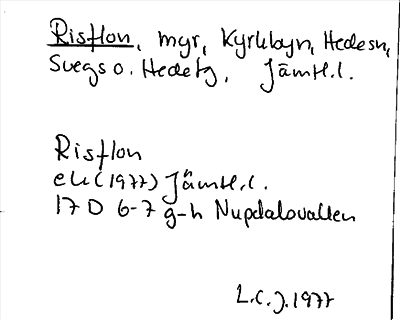 Risflon, myr, Kyrkbyn, Hedesn,
Svegs o. Hede tg, Jämtl.l.
Risflon
ek (1977) Jämtl.l.
17 D 6-7 g-h Nupdalsvallen
L.C.J. 1977